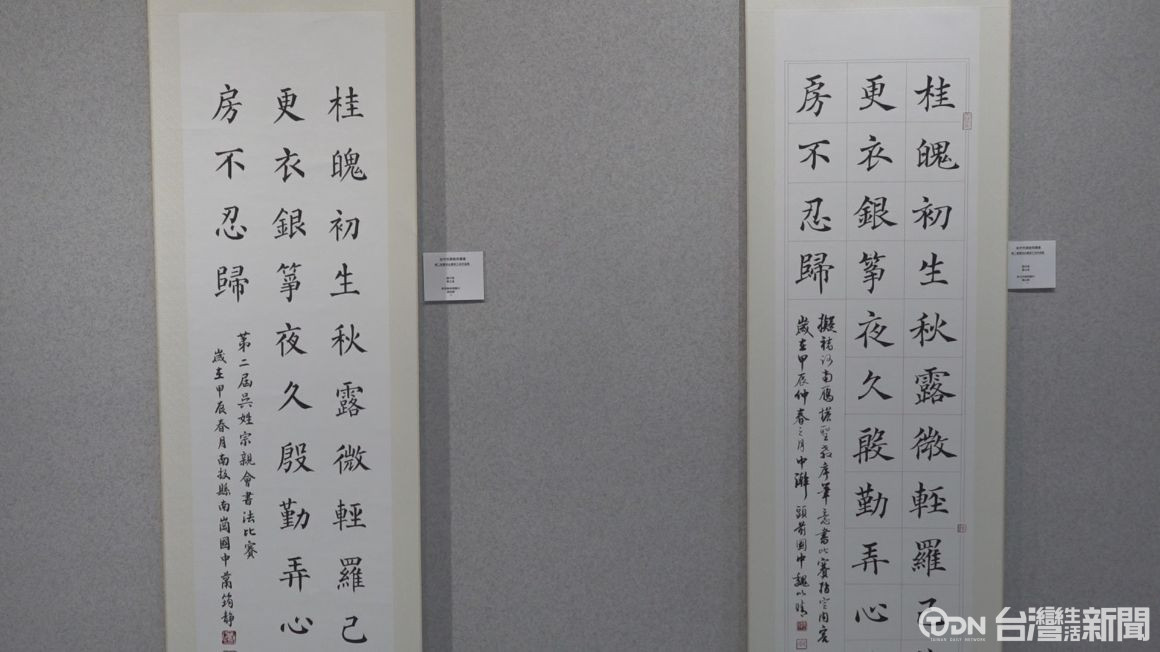 桂魄初生秋露微輕羅己
更衣銀箏夜久殷勤弄心
房不忍歸
第二屆吳姓宗親會書法比賽
歲在甲辰春月南投縣南崗國中蕭筠靜
桂魄初生秋露微輕羅己
更衣銀箏夜久殷勤弄心
房不忍歸
擬褚河南雁塔聖教序筆意書比賽指定內容
歲在甲辰仲春之月中澣 頭前國中 魏
TDN 台灣生活新聞
TAIWAN DAILY NETWORK